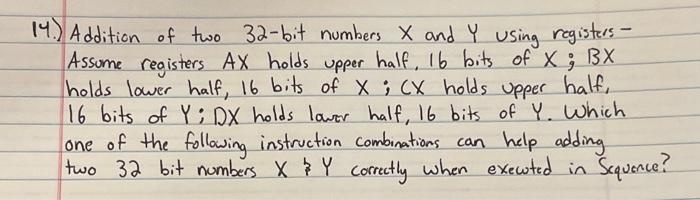 14.) Addition of two 32-bit numbers X and Y using registers -
Assume registers AX holds upper half, 16 bits of X ; BX
holds lower half, 16 bits of X ; CX holds upper half,
16 bits of Y ; DX holds lower half, 16 bits of Y. Which
one of the following instruction combinations can help adding
two 32 bit numbers X & Y correctly when executed in Sequence?